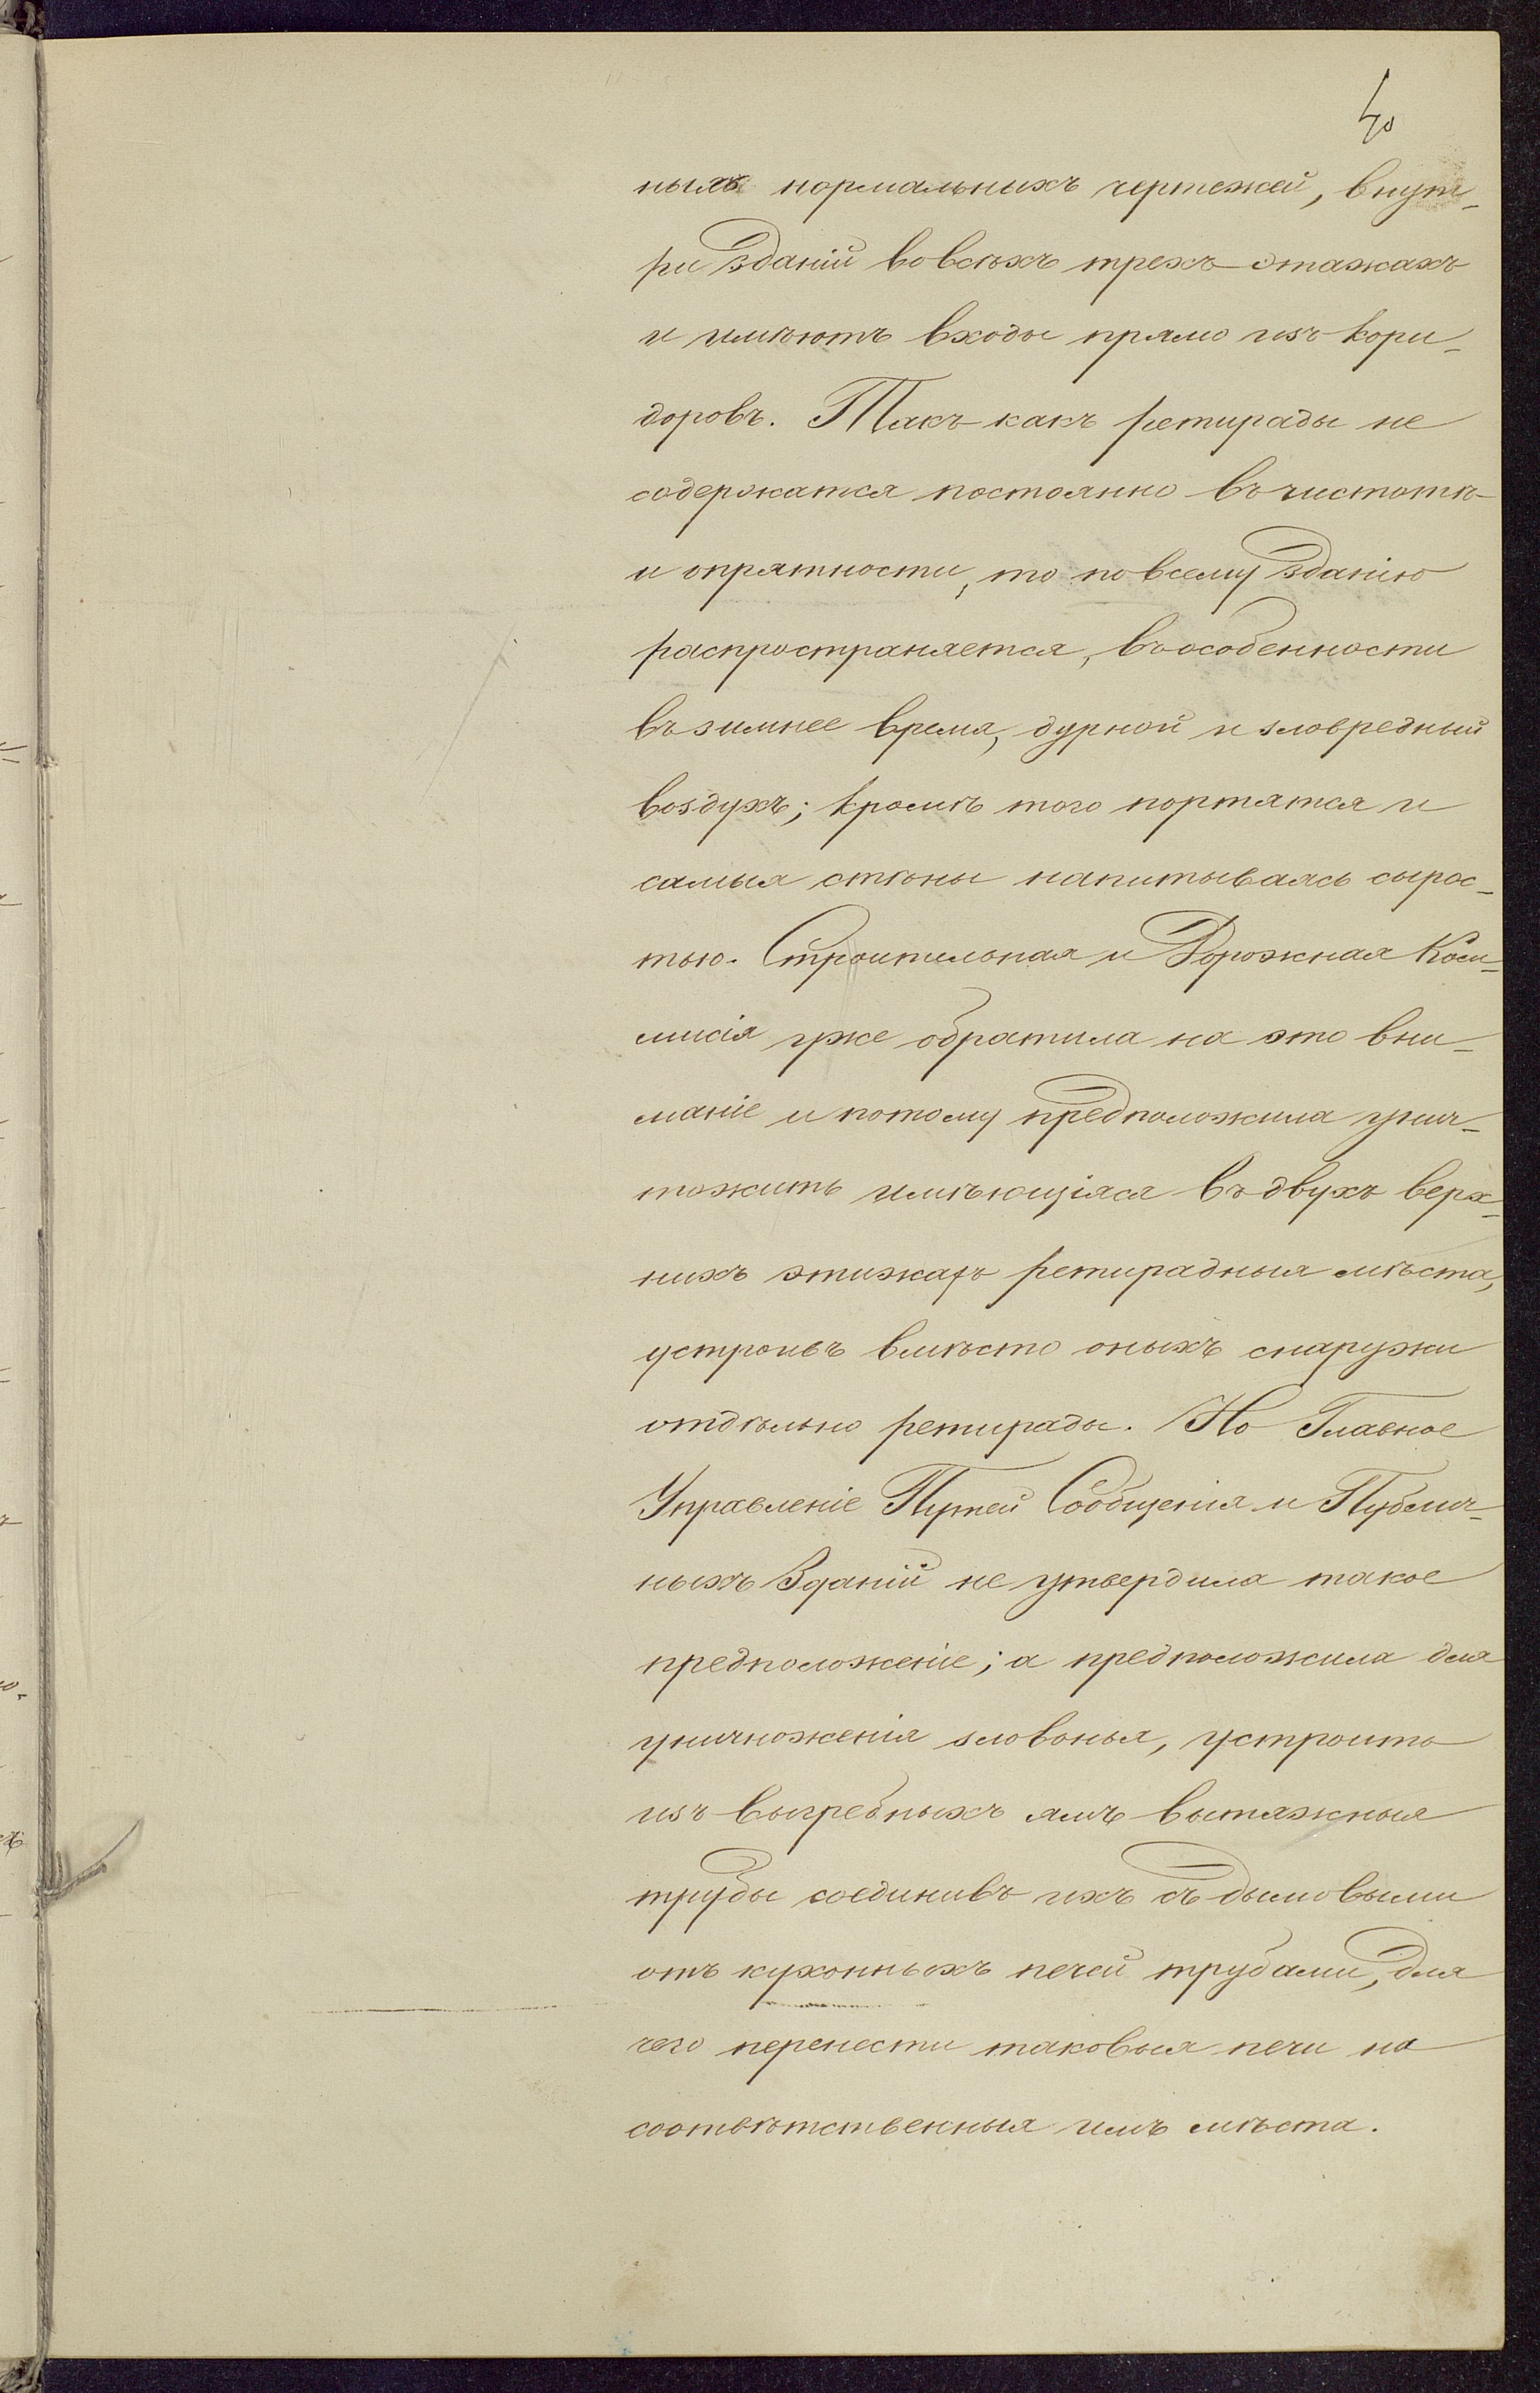 40
ныхъ нормальныхъ чертежей, внут-
ри зданій во всѣхъ трехъ этажахъ
и имѣютъ входы прямо изъ кори-
доровъ. Такъ какъ ретирады не
содержатся постоянно въ чистотѣ
и опрятности, то по всему зданію
распространяется, въ особенности
въ зимнее время, дурной и зловредный
воздухъ; кромѣ того портятся и
самыя стѣны напитываясь сырос-
тью. Строительная и Дорожная Ком-
мисія уже обратила на это вни-
маніе и потому предположила унич-
тожить имѣющіяся въ двухъ верх-
нихъ этажахъ ретирадныя мѣста,
устроивъ вмѣсто оныхъ снаружи
отдѣльно ретирады. Но Главное
Управленіе Путей Сообщенія и Публич-
ныхъ Зданій не утвердила такое
предположеніе; а предположила для
уничтоженія зловонья, устроить
изъ выгребныхъ ямъ вытяжныя
трубы соединивъ ихъ съ дымовыми
отъ кухонныхъ печей трубами, для
чего перенести таковыя печи на
соотвѣтственныя имъ мѣста.